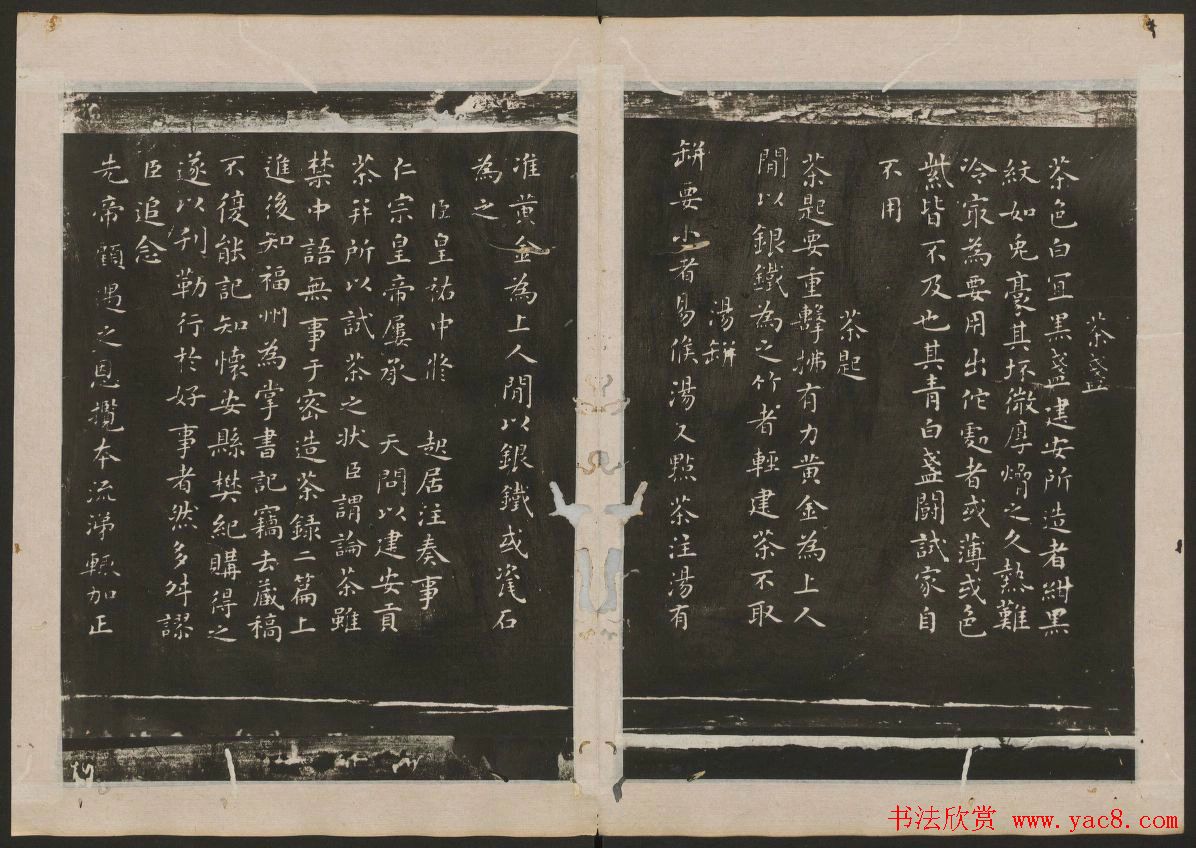 茶盞
茶色白冝黑盞建安所造者紺黑
紋如兔豪其坯微厚熁之久熱難
冷㝡為要用出佗處者或薄或色
紫皆不及也其青白盞鬪試家自
不用
茶匙
茶匙要重擊拂有力黃金為上人
閒以銀鐵為之竹者輕建茶不取
湯缾
缾要小者易候湯又點茶注湯有
准黃金為上人閒以銀鐵或瓷石
為之
臣皇祐中修 起居注奏事
仁宗皇帝屢承 天問以建安貢
茶并所以試茶之狀臣謂論茶雖
禁中語無事于密造茶錄二篇上
進後知福州為掌書記竊去藏稿
不復能記知懷安縣樊紀購得之
遂以刋勒行於好事者然多舛謬
臣追念
先帝顧遇之恩攬本流涕輒加正
书法欣赏 www.yac8.com